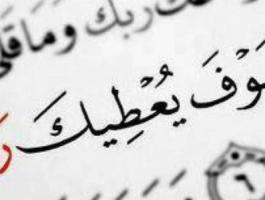 رَبُّكَ وَمَا قَلَى
وْفَ يُعْطِيكَ رَ
٦